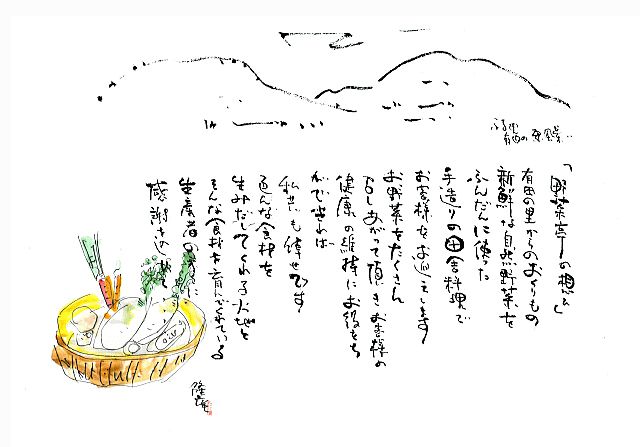 ふる里
有田の風景…
「野菜亭の想い」
有田の里からのおくりもの
新鮮な自然野菜を
ふんだんに使った
手造りの田舎料理で
お客様をお迎えします
お野菜をたくさん
召しあがって頂きお客様の
健康の維持にお役立ち
ができれば
私共も倖せです
道んな食材を
生みだしてくれる大地と
そんな食材を育んでくれている
生産者の
感謝を込めて
隆